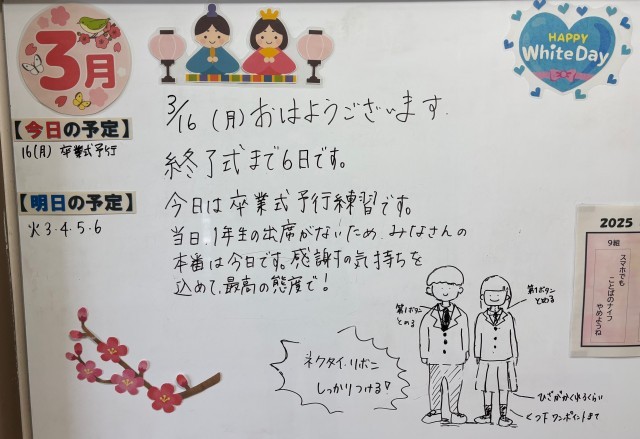 3月
HAPPY
White Day
3/16 (月) おはようございます.
【今日の予定】
16(月) 卒業式予行
終了式まで6日です。
【明日の予定】
火 3・4・5・6
今日は卒業式予行練習です。
当日、1年生の出席がないため、みなさんの
本番は今日です。感謝の気持ちを
込めて、最高の態度で!
2025
9組
スマホでも
ことばのナイフ
やめようね
第1ボタン
とめる
第1ボタン
とめる
ネクタイ・リボン
しっかりつける!
ひざがかくれるくらい
くつ下 ワンポイントまで